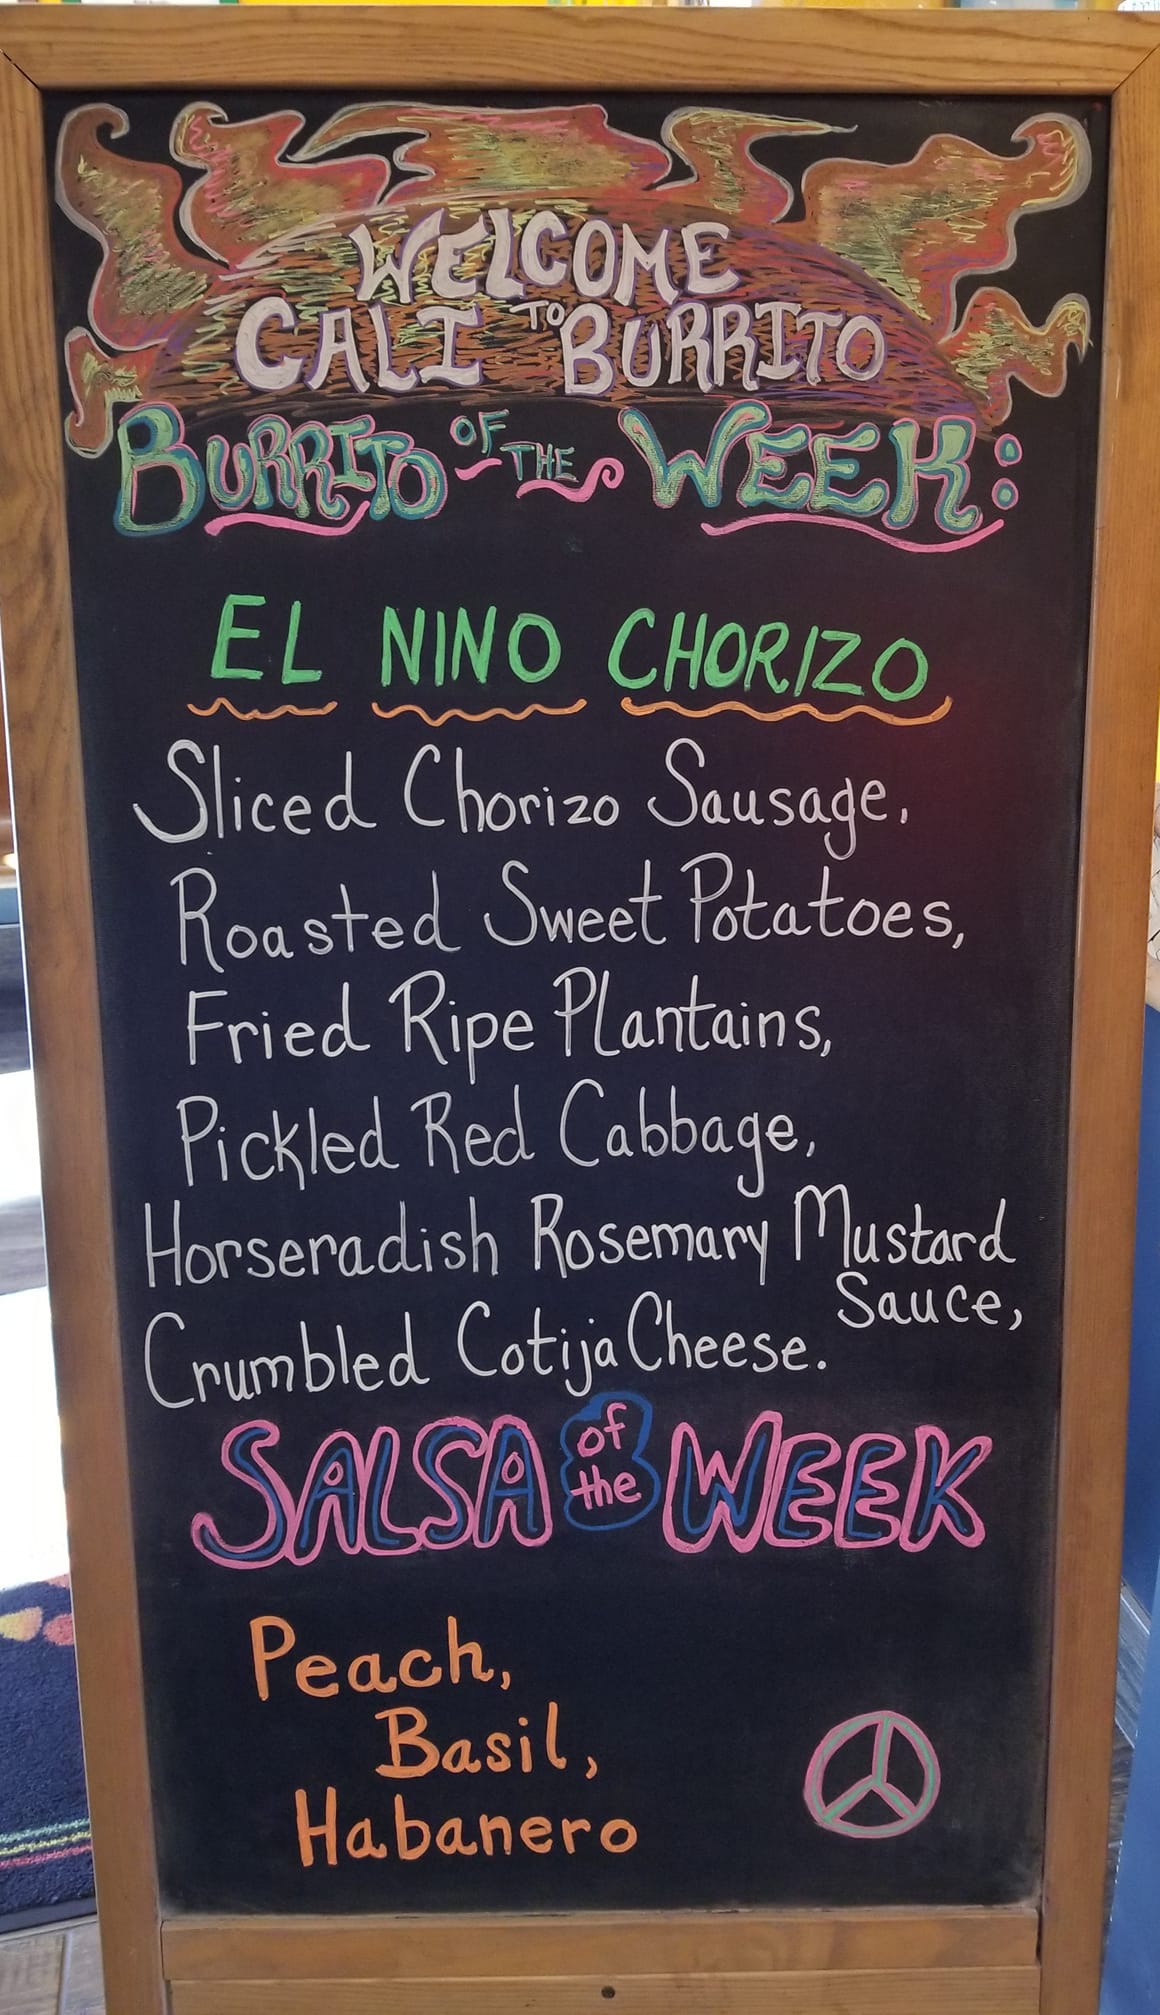 WELCOME
TO
CALI BURRITO
BURRITO OF THE WEEK:
EL NINO CHORIZO
Sliced Chorizo Sausage,
Roasted Sweet Potatoes,
Fried Ripe Plantains,
Pickled Red Cabbage,
Horseradish Rosemary Mustard
Sauce,
Crumbled Cotija Cheese.
SALSA of the WEEK
Peach,
Basil,
Habanero